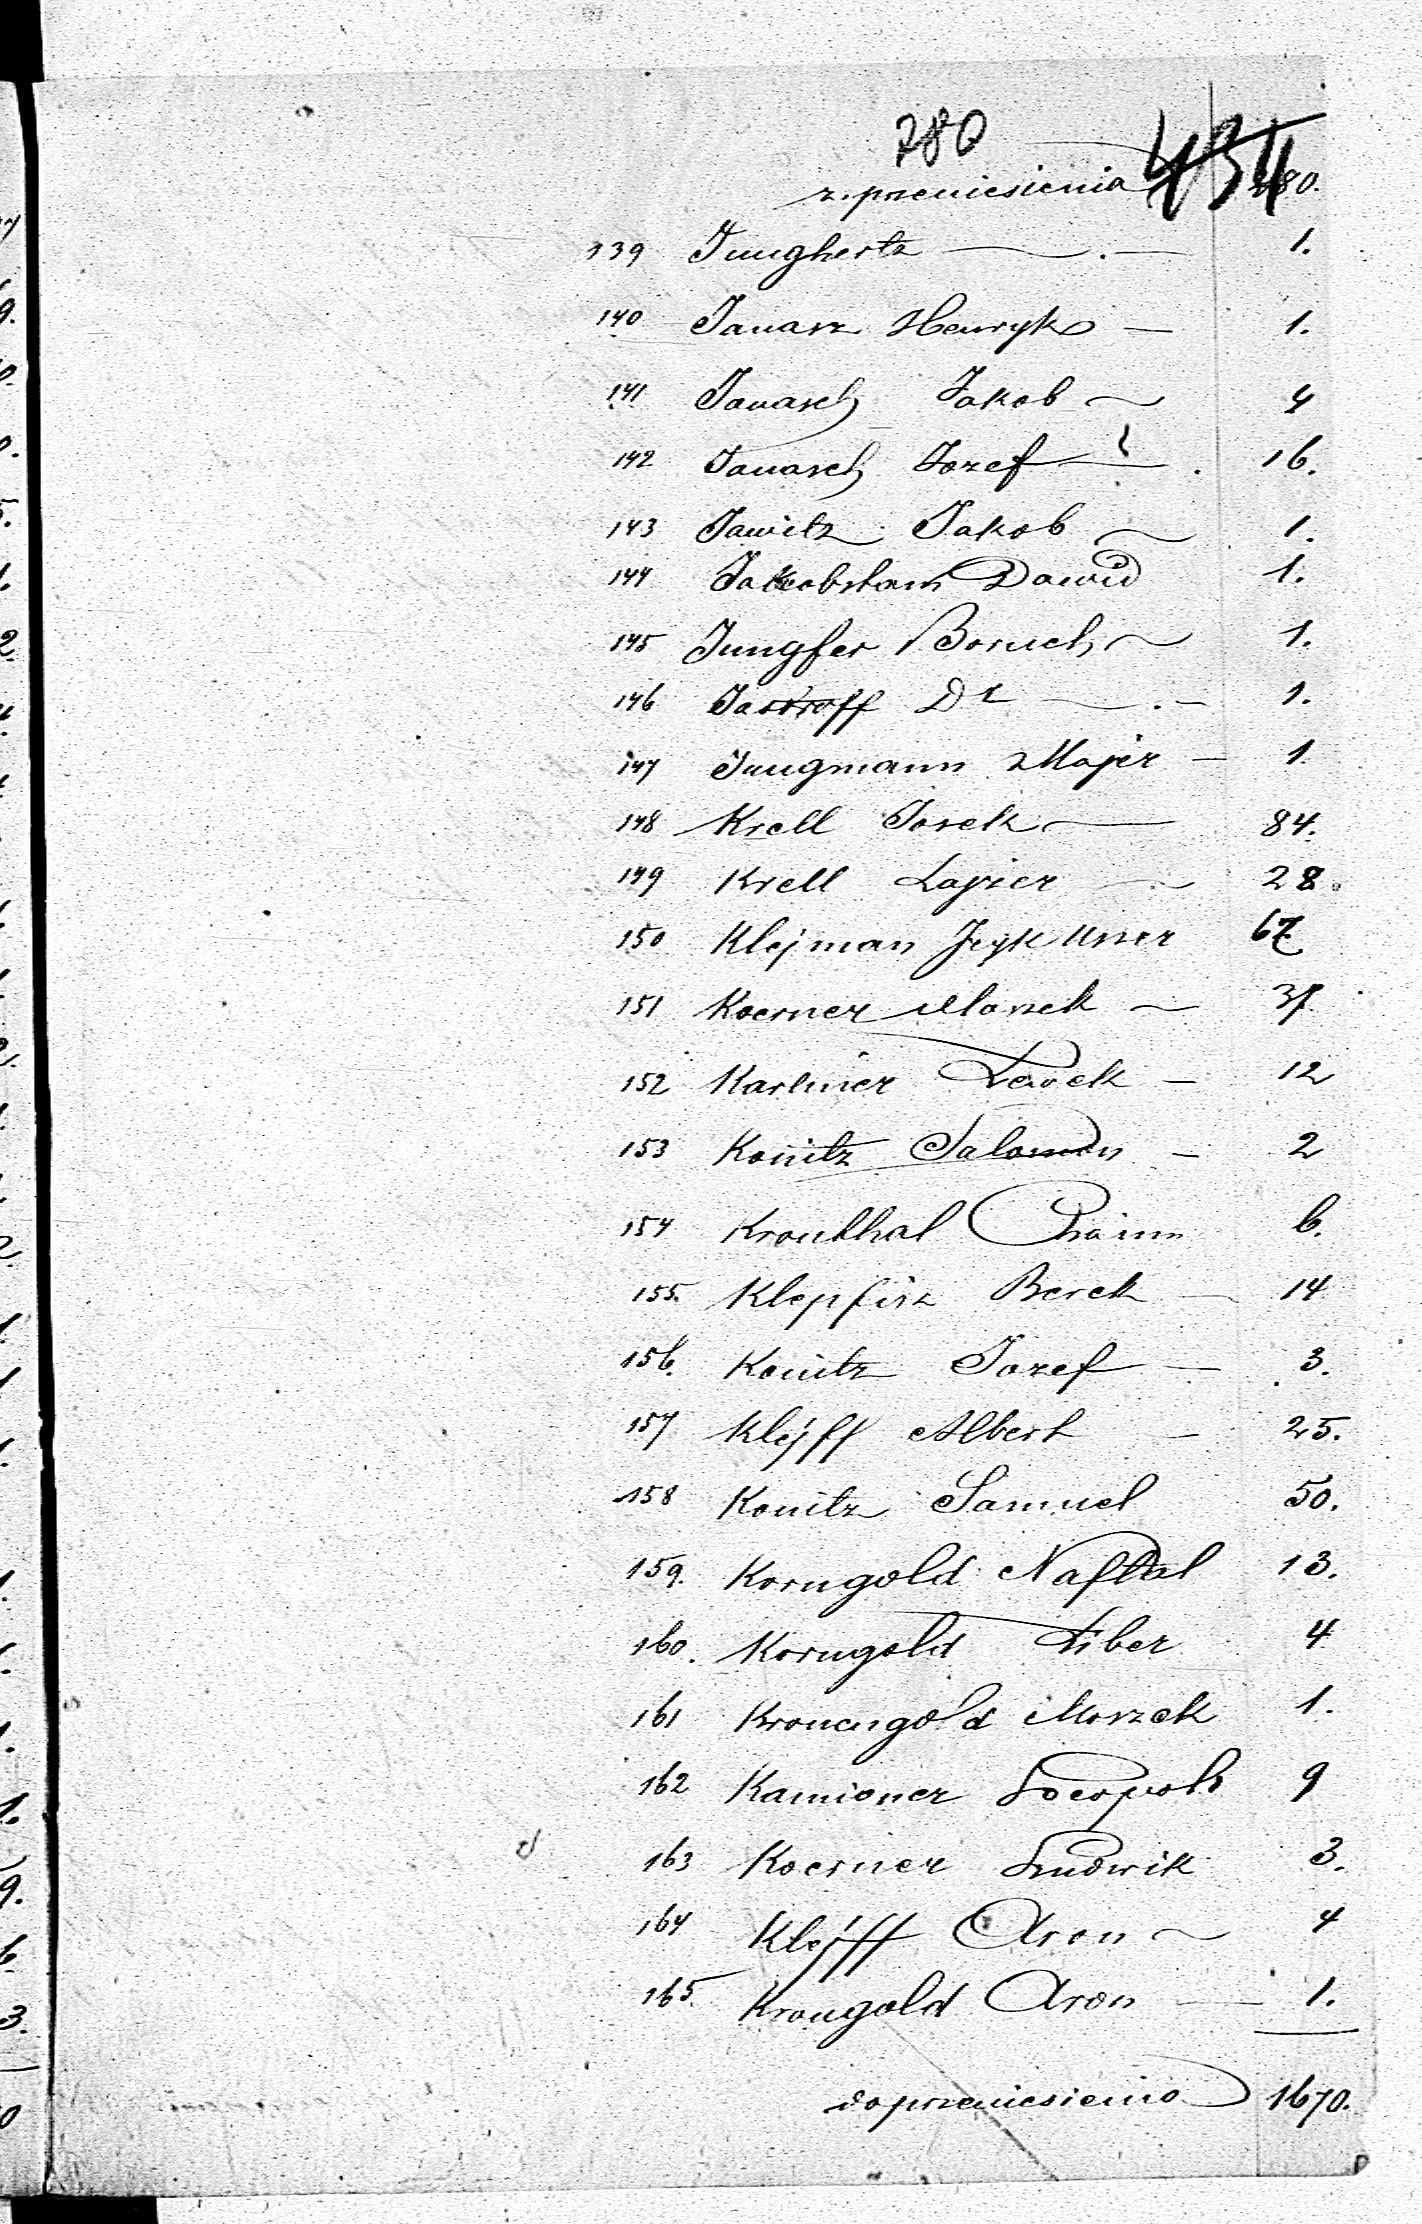 280 434
z przeniesienia 1280.
139 Junghertz — . — 1.
140 Janasz Henryk — 1.
141 Janasch Jakob ~ 4
142 Janasch Jozef — . 16.
143 Jawitz Jakob ~ 1.
144 Dawid 1.
145 Jungfer Boruch ~ 1.
146 Jastroff Dr — . — 1.
147 Jungmann Majer — 1
148 Krell Josek — 84.
149 Krell Lajzer — 28.
150 Klejman Jcyk Usser 67
151 Koerner Mosiek ~ 31
152 Karlmer Lewek — 12
153 Konitz Salomon — 2
154 Kronthal Chaim 6.
155. Klepfisz Berek — 14
156. Konitz Jozef — 3.
157 Klejff Albert — 25.
158 Konitz Samuel 50.
159. Korngold Naftal 13.
160. Korngold Liber 4
161 Kronengold Moszek 1.
162 Kamioner Leopold 9
163 Koerner Ludwik 3.
164 Klejff Aron ~ 4
165. Krongold Aron — 1.
do przeniesienia 1670.